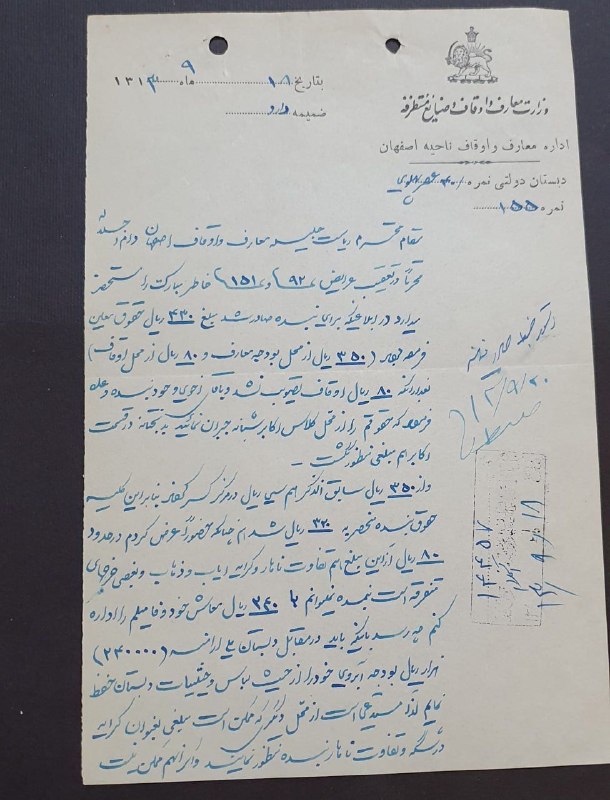 وزارت معارف و اوقاف و صنایع مستظرفه
اداره معارف و اوقاف ناحیه اصفهان
دبستان دولتی نمره ۴۰
نمره ۱۵۵
بتاریخ ۱۸ ۹ ماه ۱۳۱۳
ضمیمه دارد
مقام محترم ریاست جلیله معارف و اوقاف اصفهان دام اجلاله
محترماً در تعقیب عرایض ۹۲ و ۱۵۱ خاطر مبارک را مستحضر
میدارد در ابلاغیکه برای بنده صادر شد مبلغ ۴۳۰ ریال حقوق معین
فرموده بودید (۳۵۰ ریال از محل بودجه معارف و ۸۰ ریال از محل اوقاف)
بعد از آنکه ۸۰ ریال اوقاف تصویب نشد و وعده
فرمودند که حقوقم را از محل کلاس اکابر شبانه جبران نمائید بدبختانه در قسمت
اکابر هم مبلغی منظور نگشت –
و از ۳۵۰ ریال سابق الذکر هم سی ریال در مرکز کسر بنابراین کلیه
حقوق بنده منحصر به ۳۲۰ ریال شد چنانکه حضوراً عرض کردم در حدود
۸۰ ریال از این مبلغ هم تفاوت ناهار و کرایه ایاب و ذهاب و بعضی خرجهای
متفرقه است بنده نمیتوانم با ۲۴۰ ریال معاش خود و فامیلم را اداره
کنم چه رسد باینکه باید در مقابل دبستان (۲۴۰۰۰۰)
هزار ریال بودجه آبروی خود را از حیث لباس و حیثیات دبستان حفظ
نمایم لذا مستدعی است از محل دیگری که ممکن است مبلغی بعنوان کرایه
درشگه و تفاوت ناهار بنده منظور نمایند و اگر آنهم ممکن نیست
۱۳/۹/۲۰
۱۴۴۵۷
۱۳/۹/۱۸